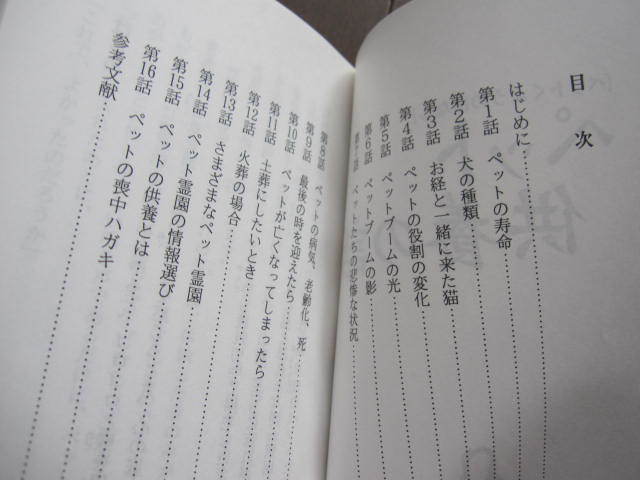 目次
はじめに
第1話 ペットの寿命
第2話 犬の種類
第3話 お経と一緒に来た猫
第4話 ペットの役割の変化
第5話 ペットブームの光
第6話 ペットブームの影
第7話 ペットたちの悲惨な状況
第8話 ペットの病気、老齢化、死
第9話 最後の時を迎えたら
第10話 ペットが亡くなってしまったら
第11話 土葬にしたいとき
第12話 火葬の場合
第13話 さまざまなペット霊園
第14話 ペット霊園の情報選び
第15話 ペットの供養とは
第16話 ペットの喪中ハガキ
参考文献